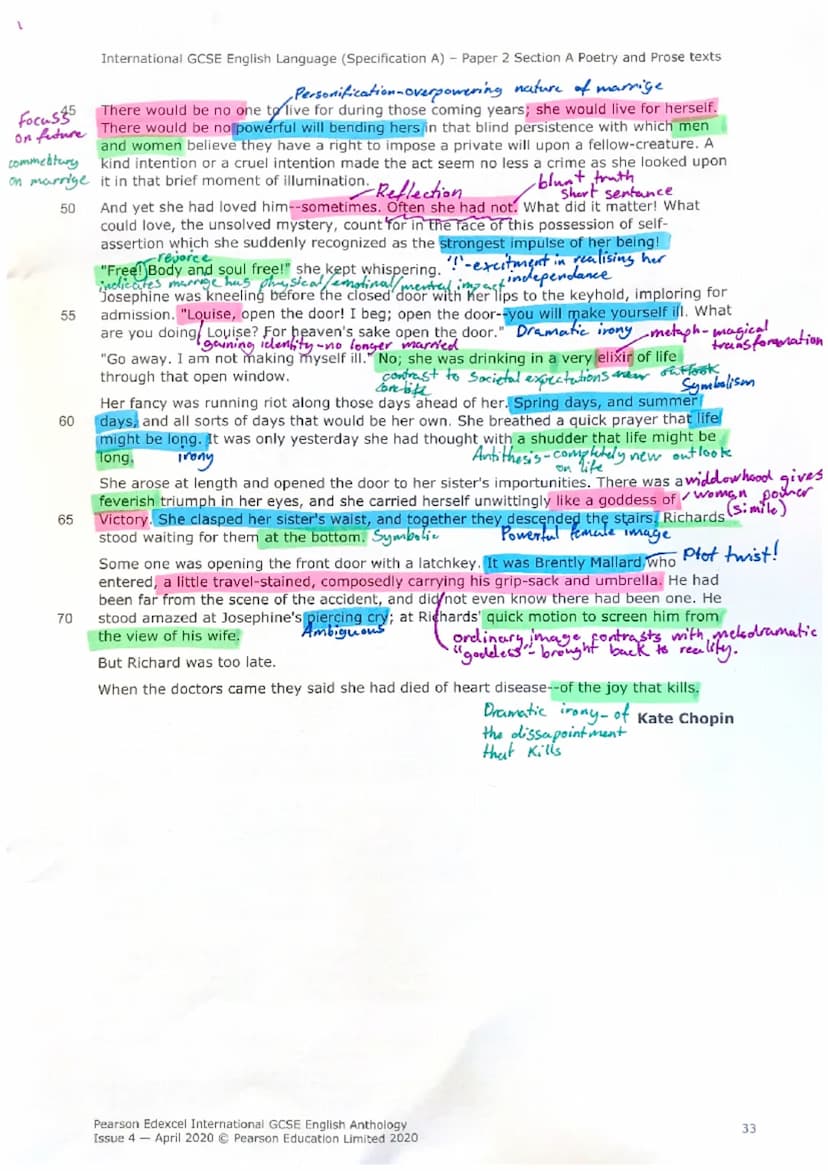 International GCSE English Language (Specification A) – Paper 2 Section A Poetry and Prose texts
Personification-overpowering nature of marrige
45
There would be no one to live for during those coming years; she would live for herself.
Focuss
on future
There would be no powerful will bending hers in that blind persistence with which men
and women believe they have a right to impose a private will upon a fellow-creature. A
commentary
on marrige
kind intention or a cruel intention made the act seem no less a crime as she looked upon
it in that brief moment of illumination.
Reflection
blunt truth
short sentence
50
And yet she had loved him--sometimes. Often she had not. What did it matter! What
could love, the unsolved mystery, count for in the face of this possession of self-
assertion which she suddenly recognized as the strongest impulse of her being!
rejoice
"Free! Body and soul free!" she kept whispering.
'!'-excitment in realising her
independance
indicates marrige has physical/emotinal/mental impact
Josephine was kneeling before the closed door with her lips to the keyhold, imploring for
55
admission. "Louise, open the door! I beg; open the door--you will make yourself ill. What
are you doing, Louise? For heaven's sake open the door."
Dramatic irony
metaph-magical
transformation
gaining identity-no longer married
"Go away. I am not making myself ill." No; she was drinking in a very elixir of life
through that open window.
contrast to societal expectations new outlook
Symbolism
Her fancy was running riot along those days ahead of her. Spring days, and summer
60
days, and all sorts of days that would be her own. She breathed a quick prayer that life
might be long. It was only yesterday she had thought with a shudder that life might be
long.
irony
Antithesis-completely new outlook
on life
She arose at length and opened the door to her sister's importunities. There was a
widdowhood gives
woman power
(simile)
feverish triumph in her eyes, and she carried herself unwittingly like a goddess of
65
Victory. She clasped her sister's waist, and together they descended the stairs. Richards
stood waiting for them at the bottom.
Symbolic
Powerful female image
Some one was opening the front door with a latchkey. It was Brently Mallard who
Plot twist!
entered, a little travel-stained, composedly carrying his grip-sack and umbrella. He had
been far from the scene of the accident, and did not even know there had been one. He
70
stood amazed at Josephine's piercing cry; at Richards' quick motion to screen him from
Ambiguous
the view of his wife.
ordinary image contrasts with melodramatic
"goddess"- brought back to reality.
But Richard was too late.
When the doctors came they said she had died of heart disease--of the joy that kills.
Dramatic irony- of
the dissapointment
that kills
Kate Chopin
Pearson Edexcel International GCSE English Anthology
Issue 4 — April 2020 © Pearson Education Limited 2020
33